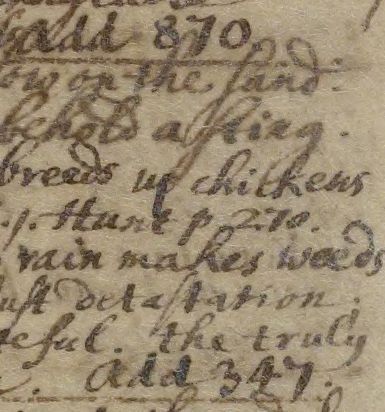 add 870
ow on the sand.
behold a sting.
breeds up chickens
. Hunt p 210.
rain makes weeds
ust detastation.
teful. the truly
add 347.